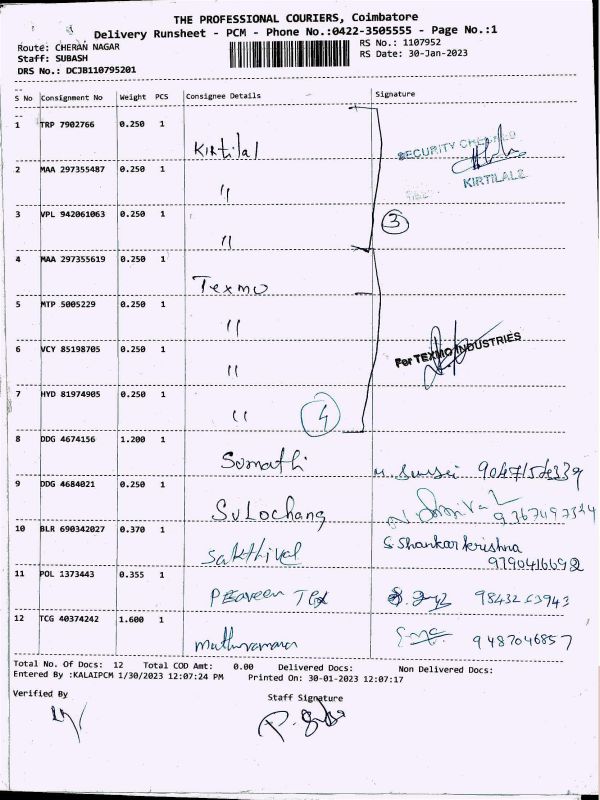 THE PROFESSIONAL COURIERS, Coimbatore
Delivery Runsheet - PCM - Phone No.:0422-3505555 - Page No.:1
Route: CHERAN NAGAR RS No.: 1107952
Staff: SUBASH RS Date: 30-Jan-2023
DRS No.: DCJB110795201
S No Consignment No Weight PCS Consignee Details Signature
1 TRP 7902766 0.250 1
Kirtilal SECURITY
2 MAA 297355487 0.250 1
KIRTILALZ
〃
3 VPL 942061063 0.250 1
3
〃
4 MAA 297355619 0.250 1
Texmo
5 MTP 5005229 0.250 1
〃
6 VCY 85198705 0.250 1
For TEXMO INDUSTRIES
〃
7 HYD 81974905 0.250 1
〃 4
8 DDG 4674156 1.200 1
Somathi
9 DDG 4684021 0.250 1
Sulochana
10 BLR 690342027 0.370 1
Sakthivel S Shankar krishna
11 POL 1373443 0.355 1
Praveen Tex
12 TCG 40374242 1.600 1
9487046857
Total No. Of Docs: 12 Total COD Amt: 0.00 Delivered Docs: Non Delivered Docs:
Entered By :KALAIPCM 1/30/2023 12:07:24 PM Printed On: 30-01-2023 12:07:17
Verified By Staff Signature